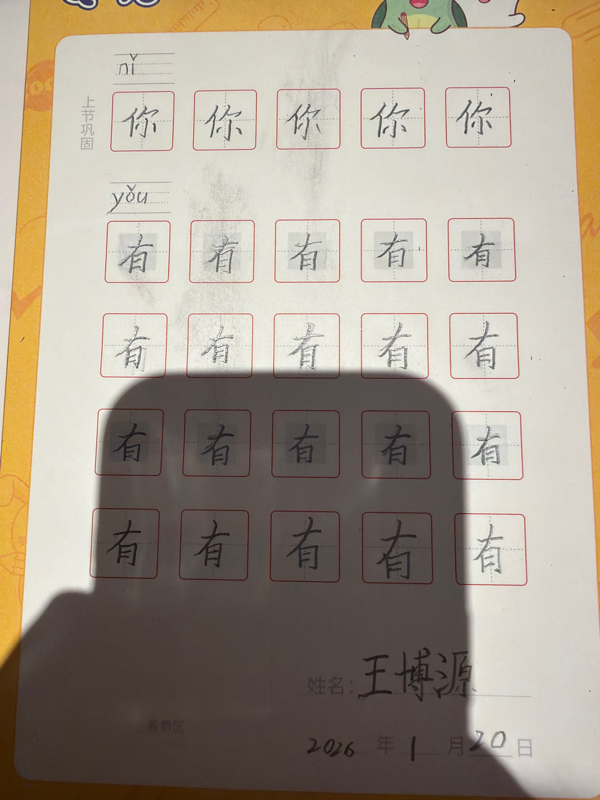 nǐ
上节巩固
你 你 你 你 你
yǒu
有 有 有 有 有
有 有 有 有 有
有 有 有 有 有
有 有 有 有 有
姓名：王博源
2026 年 1 月 20 日